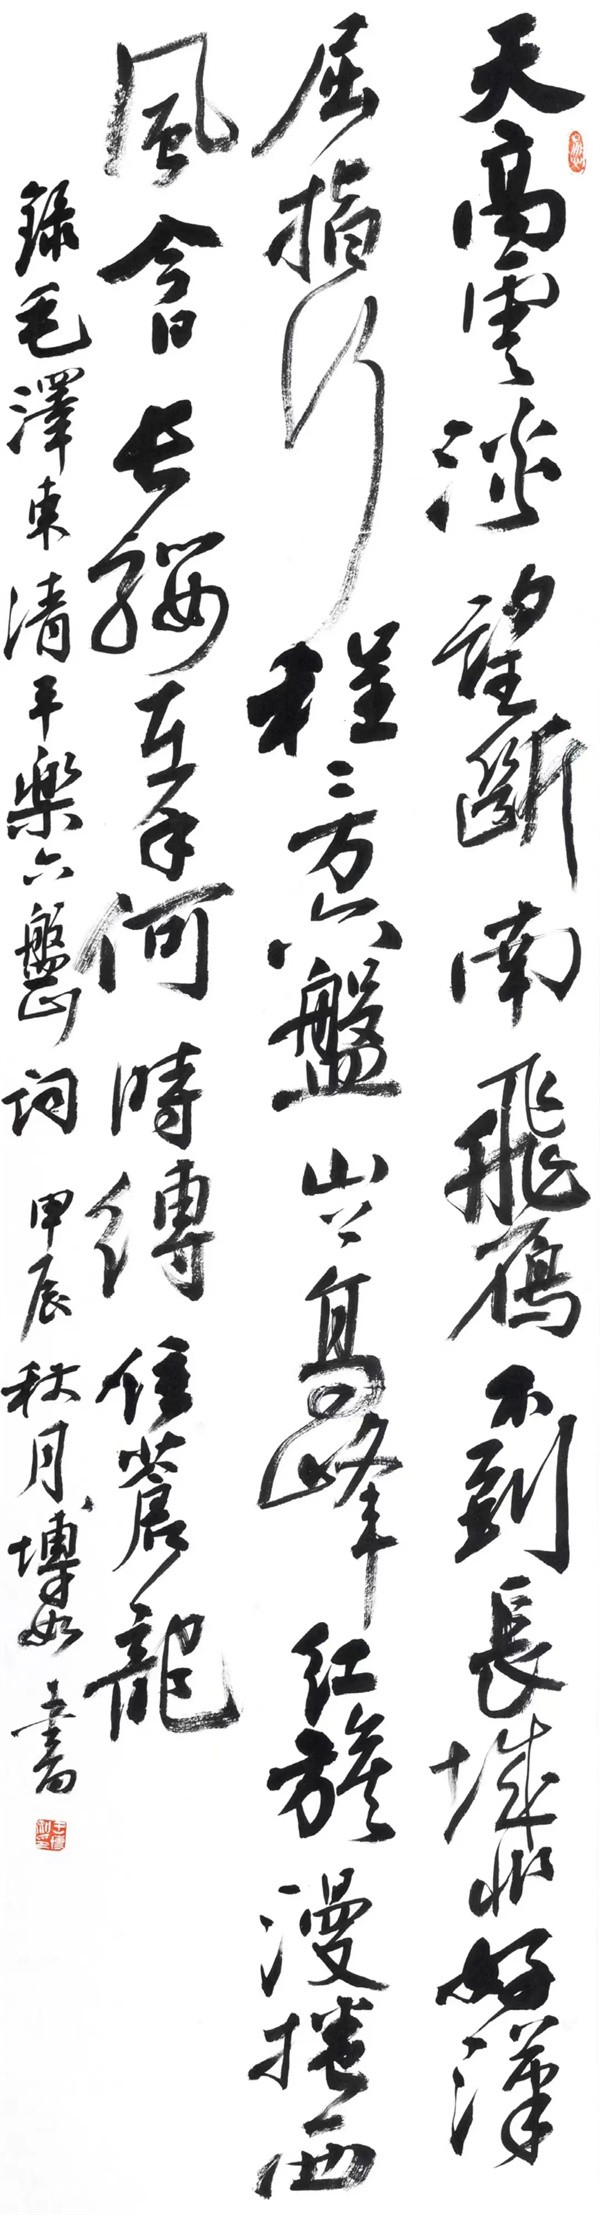 天高雲淡望斷南飛雁不到長城非好漢
屈指行程二万六盤山上高峰红旗漫捲西
風今日長纓在手何時縛住蒼龍
錄毛澤東清平樂六盤山詞 甲辰秋月 博如書